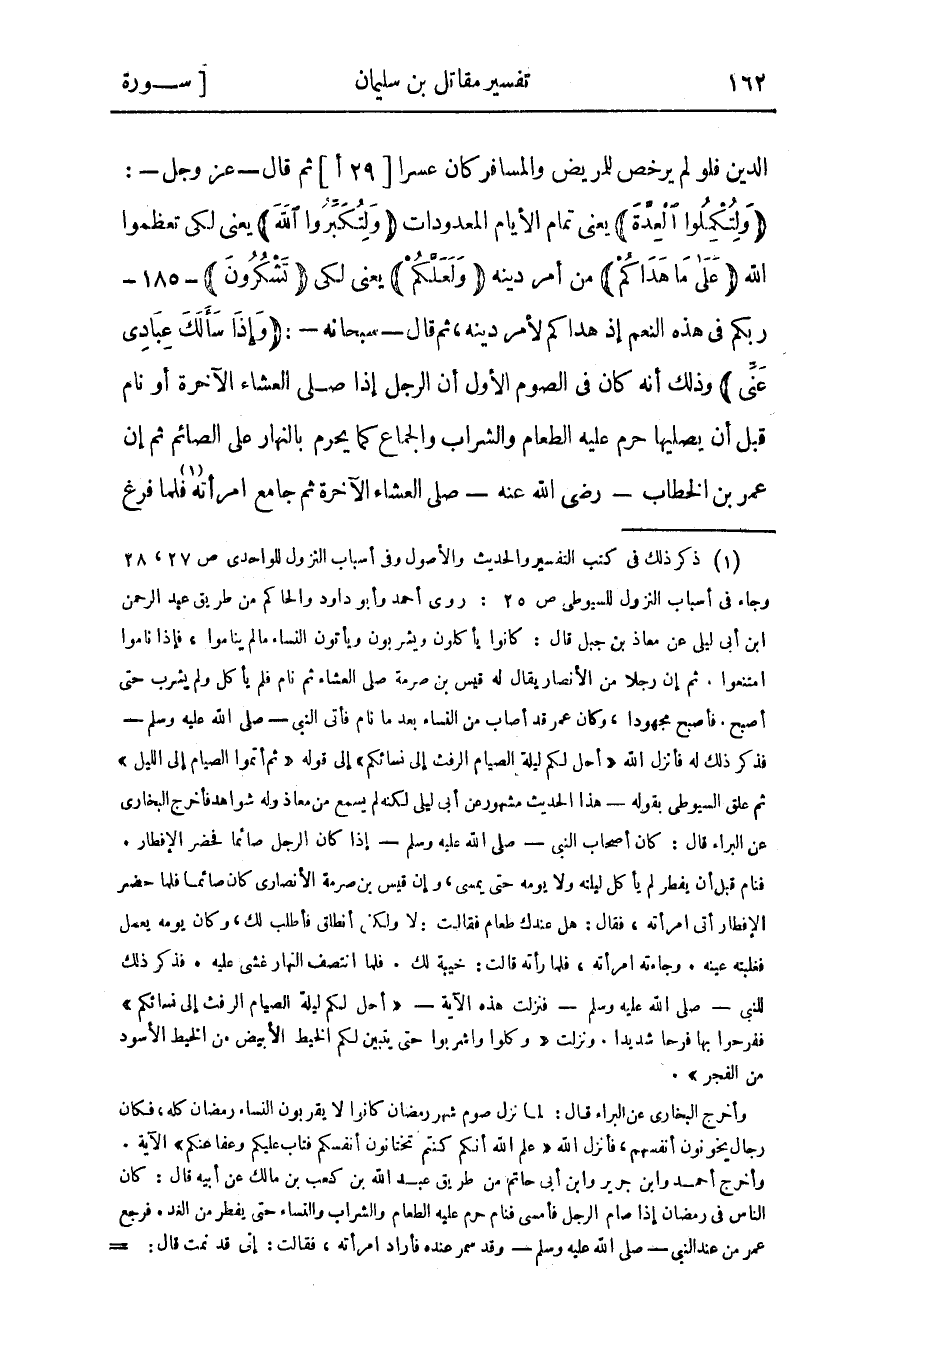 ١٦٢ تفسير مقاتل بن سليمان [ ســورة
الدين فلو لم يرخص للمريض والمسافر كان عسرا [ ٢٩ أ ] ثم قال – عز وجل – :
﴿ وَلِتُكْمِلُوا ٱلْعِدَّةَ ﴾ يعنى تمام الأيام المعدودات ﴿ وَلِتُكَبِّرُوا ٱللَّهَ ﴾ يعنى لكى تعظموا
الله ﴿ عَلَىٰ مَا هَدَاكُمْ ﴾ من أمر دينه ﴿ وَلَعَلَّكُمْ ﴾ يعنى لكى ﴿ تَشْكُرُونَ ﴾ – ١٨٥ –
ربكم فى هذه النعم إذ هداكم لأمر دينه ، ثم قال – سبحانه – : ﴿ وَإِذَا سَأَلَكَ عِبَادِى
عَنِّى ﴾ وذلك أنه كان فى الصوم الأول أن الرجل إذا صــلى العشاء الآخرة أو نام
قبل أن يصليها حرم عليه الطعام والشراب والجماع كما يحرم بالنهار على الصائم ثم إن
عمر بن الخطاب – رضى الله عنه – صلى العشاء الآخرة ثم جامع امرأته (١) فلما فرغ
(١) ذكر ذلك فى كتب التفسير والحديث والأصول وفى أسباب النزول للواحدى ص ٢٧ ، ٢٨
وجاء فى أسباب النزول للسيوطى ص ٢٥ : روى أحمد وأبو داود والحاكم من طريق عبد الرحمن
ابن أبى ليلى عن معاذ بن جبل قال : كانوا يأكلون ويشربون ويأتون النساء مالم يناموا ، فإذا ناموا
امتنعوا . ثم إن رجلا من الأنصار يقال له قيس بن صرمة صلى العشاء ثم نام فلم يأكل ولم يشرب حتى
أصبح . فأصبح مجهودا ، وكان عمر قد أصاب من النساء بعد ما نام فأتى النبى – صلى الله عليه وسلم –
فذكر ذلك له فأنزل الله « أحل لكم ليلة الصيام الرفث إلى نسائكم » إلى قوله « ثم أتموا الصيام إلى الليل »
ثم علق السيوطى بقوله – هذا الحديث مشهور عن أبى ليلى لكنه لم يسمع من معاذ وله شواهد فأخرج البخارى
عن البراء قال : كان أصحاب النبى – صلى الله عليه وسلم – إذا كان الرجل صائما فحضر الإفطار .
فنام قبل أن يفطر لم يأكل ليلته ولا يومه حتى يمسى ، و إن قيس بن صرمة الأنصارى كان صائمـا فلما حضر
الإفطار أتى امرأته ، فقال : هل عندك طعام فقالت : لا ولكن أنطلق فأطلب لك ، وكان يومه يعمل
فغلبته عينه . وجاءته امرأته ، فلما رأته قالت : خيبة لك . فلما انتصف النهار غشى عليه . فذكر ذلك
للنبى – صلى الله عليه وسلم – فنزلت هذه الآية – « أحل لكم ليلة الصيام الرفث إلى نسائكم »
ففرحوا بها فرحا شديدا . ونزلت « وكلوا واشربوا حتى يتبين لكم الخيط الأبيض من الخيط الأسود
من الفجر » .
وأخرج البخارى عن البراء قـال : لمـا نزل صوم شهر رمضان كانوا لا يقربون النساء رمضان كله ، فكان
رجال يخونون أنفسهم ، فأنزل الله « علم الله أنكم كنتم تختانون أنفسكم فتاب عليكم وعفا عنكم » الآية .
وأخرج أحمـد وابن جرير وابن أبى حاتم من طريق عبـد الله بن كعب بن مالك عن أبيه قال : كان
الناس فى رمضان إذا صام الرجل فأمسى فنام حرم عليه الطعام والشراب والنساء حتى يفطر من الغد . فرجع
عمر من عند النبى – صلى الله عليه وسلم – وقد سمر عنده فأراد امرأته ، فقالت : إنى قد نمت قال : =